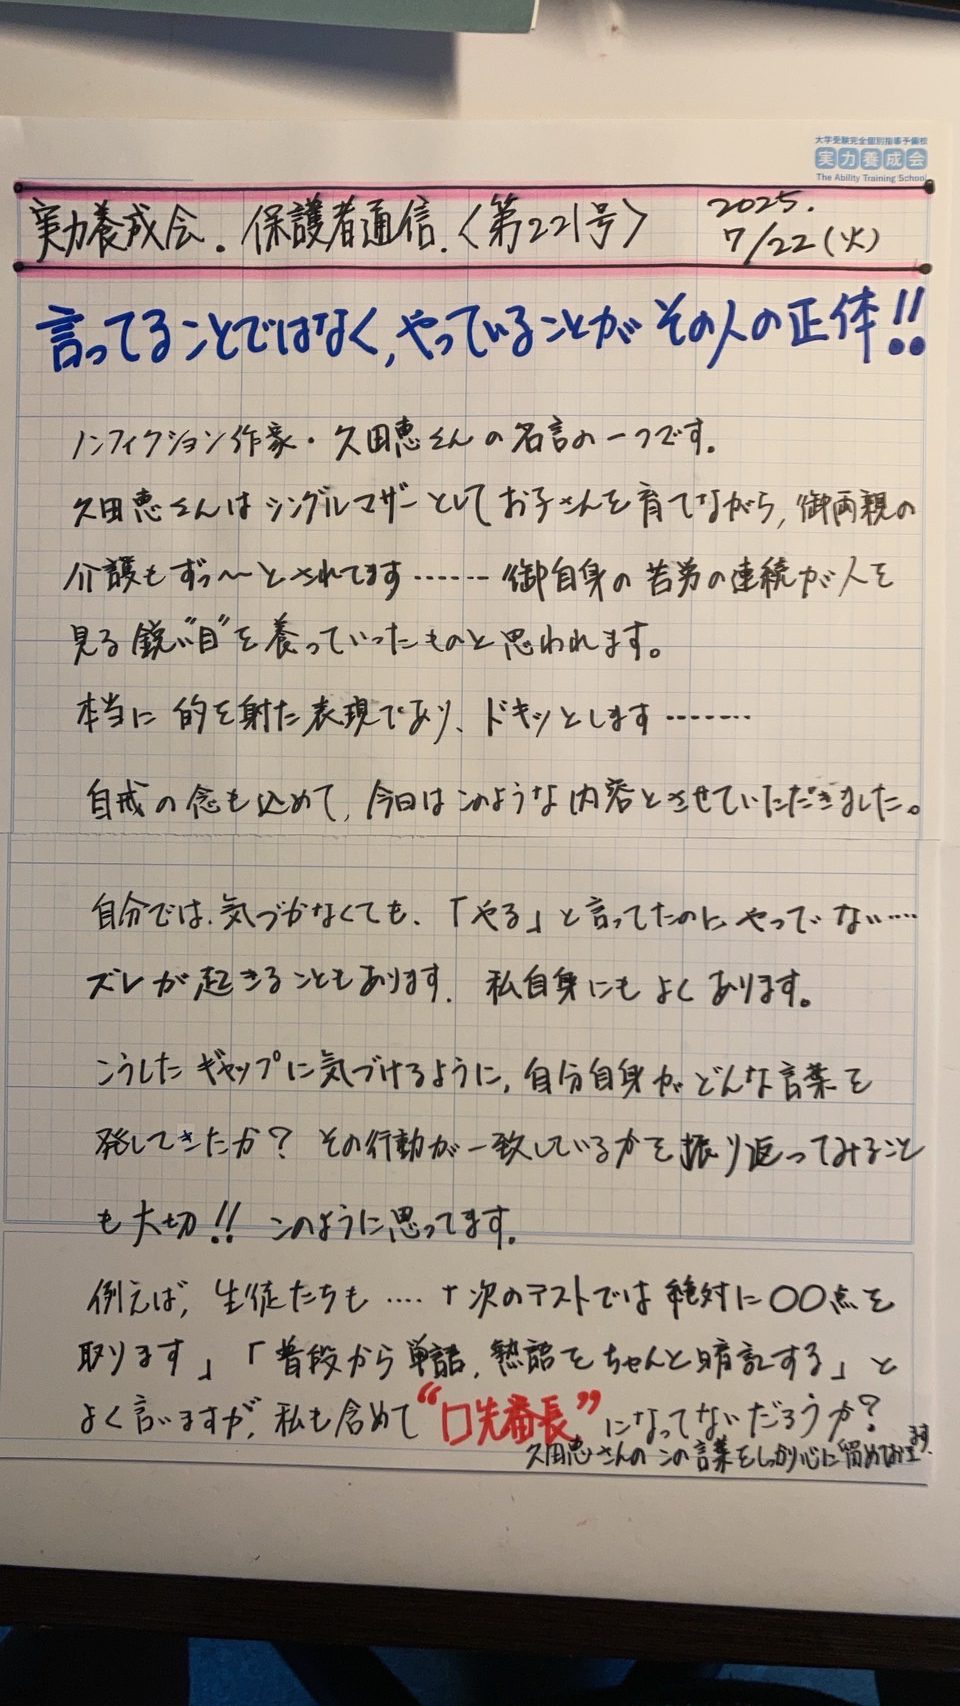 大学受験完全個別指導予備校
実力養成会
The Ability Training School
実力養成会. 保護者通信.〈第221号〉
2025.
7/22(火)
言ってることではなく、やっていることがその人の正体!!
ノンフィクション作家・久田恵さんの名言の一つです。
久田恵さんはシングルマザーとしてお子さんを育てながら、御両親の
介護もずっ〜とされてます……御自身の苦労の連続が人を
見る鋭い"目"を養っていったものと思われます。
本当に的を射た表現であり、ドキッとします……
自戒の念も込めて、今日はこのような内容とさせていただきました。
自分では、気づかなくても、「やる」と言ってたのに、やってない……
ズレが起きることもあります。私自身にもよくあります。
こうしたギャップに気づけるように、自分自身がどんな言葉を
発してきたか？その行動が一致しているかを振り返ってみること
も大切!! このように思ってます。
例えば、生徒たちも….「次のテストでは絶対に〇〇点を
取ります」「普段から単語、熟語をちゃんと暗記する」と
よく言いますが、私も含めて"口先番長"になってないだろうか？
久田恵さんのこの言葉をしっかり心に留めておきます.